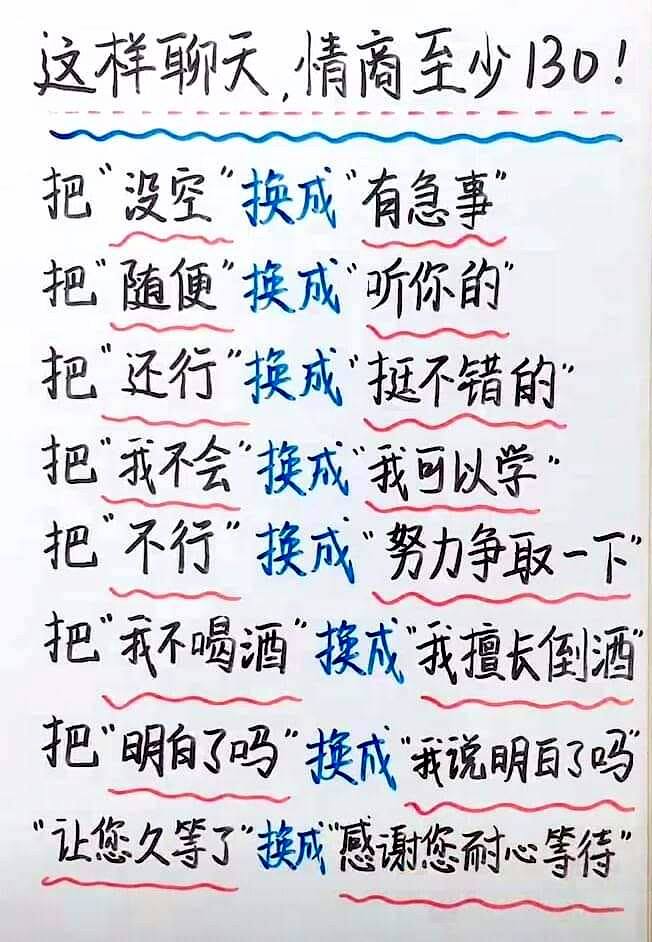 这样聊天,情商至少130!
把"没空"换成"有急事"
把"随便"换成"听你的"
把"还行"换成"挺不错的"
把"我不会"换成"我可以学"
把"不行"换成"努力争取一下"
把"我不喝酒"换成"我擅长倒酒"
把"明白了吗"换成"我说明白了吗"
"让您久等了"换成"感谢您耐心等待"